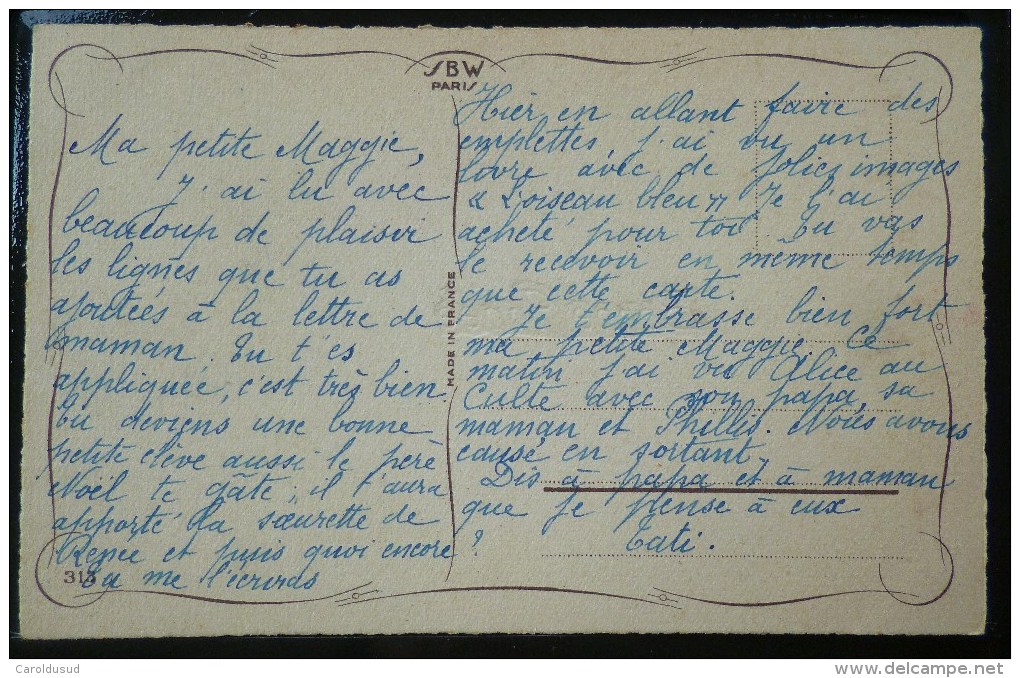 SBW
PARIS
Ma petite Maggie,
J'ai lu avec
beaucoup de plaisir
les lignes que tu as
ajoutées à la lettre de
maman. Tu t'es
appliquée, c'est très bien.
Tu deviens une bonne
petite élève aussi le père
Noël te gâte; il t'aura
apporté la sœurette de
Renée et puis quoi encore ?
Tu me l'écriras
313
MADE IN FRANCE
Hier en allant faire des
emplettes, j'ai vu un
livre avec de jolies images
« L'oiseau bleu » Je l'ai
acheté pour toi Tu vas
le recevoir en même temps
que cette carte.
Je t'embrasse bien fort
ma petite Maggie. Ce
matin j'ai vu Alice au
Culte avec son papa, sa
maman et Phillis. Nous avons
causé en sortant.
Dis à papa et à maman
que je pense à eux
Tati.
Caroldusud
www.delcampe.net